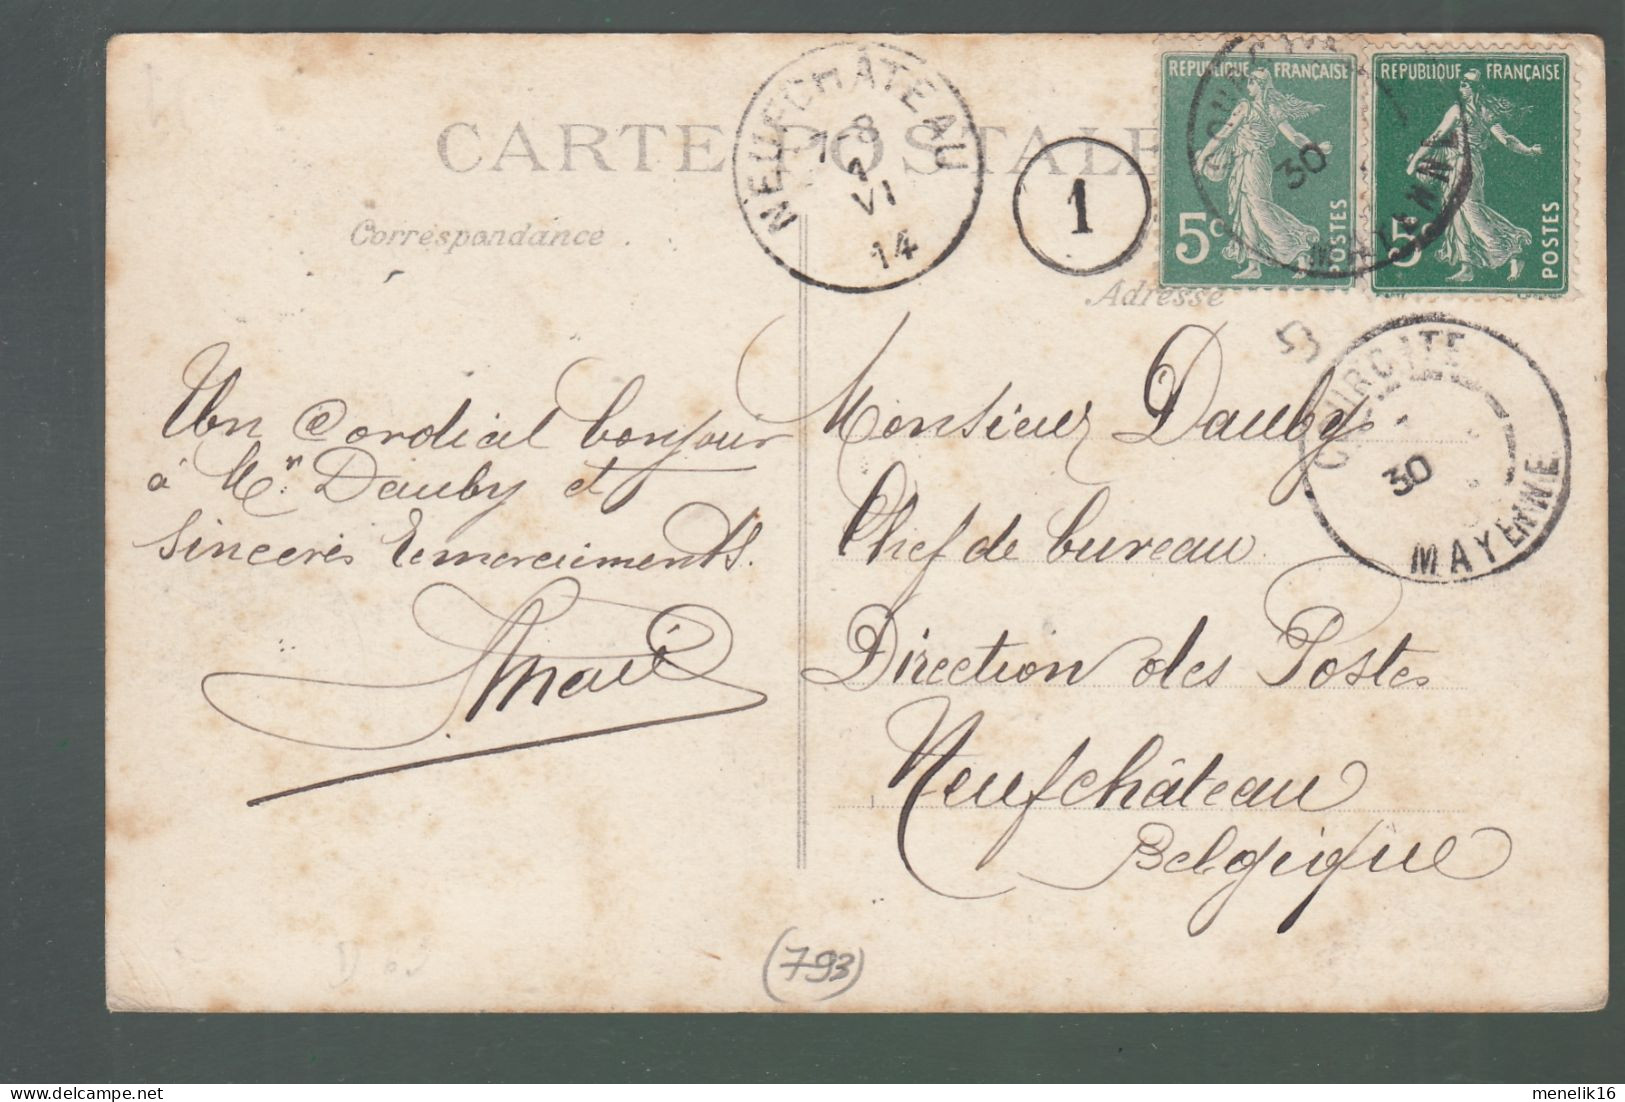 CARTE POSTALE
Correspondance
Adresse
NEUFCHÂTEAU
VI
14
1
REPUBLIQUE FRANÇAISE
5c
POSTES
REPUBLIQUE FRANÇAISE
5c
POSTES
30
MAYENNE
30
MAYENNE
Un Cordial bonjour
à Mr. Dauby et
Sincères Remerciments.
Monsieur Dauby
Chef de bureau
Direction des Postes
Neufchâteau
Belgique
(793)
menelik16